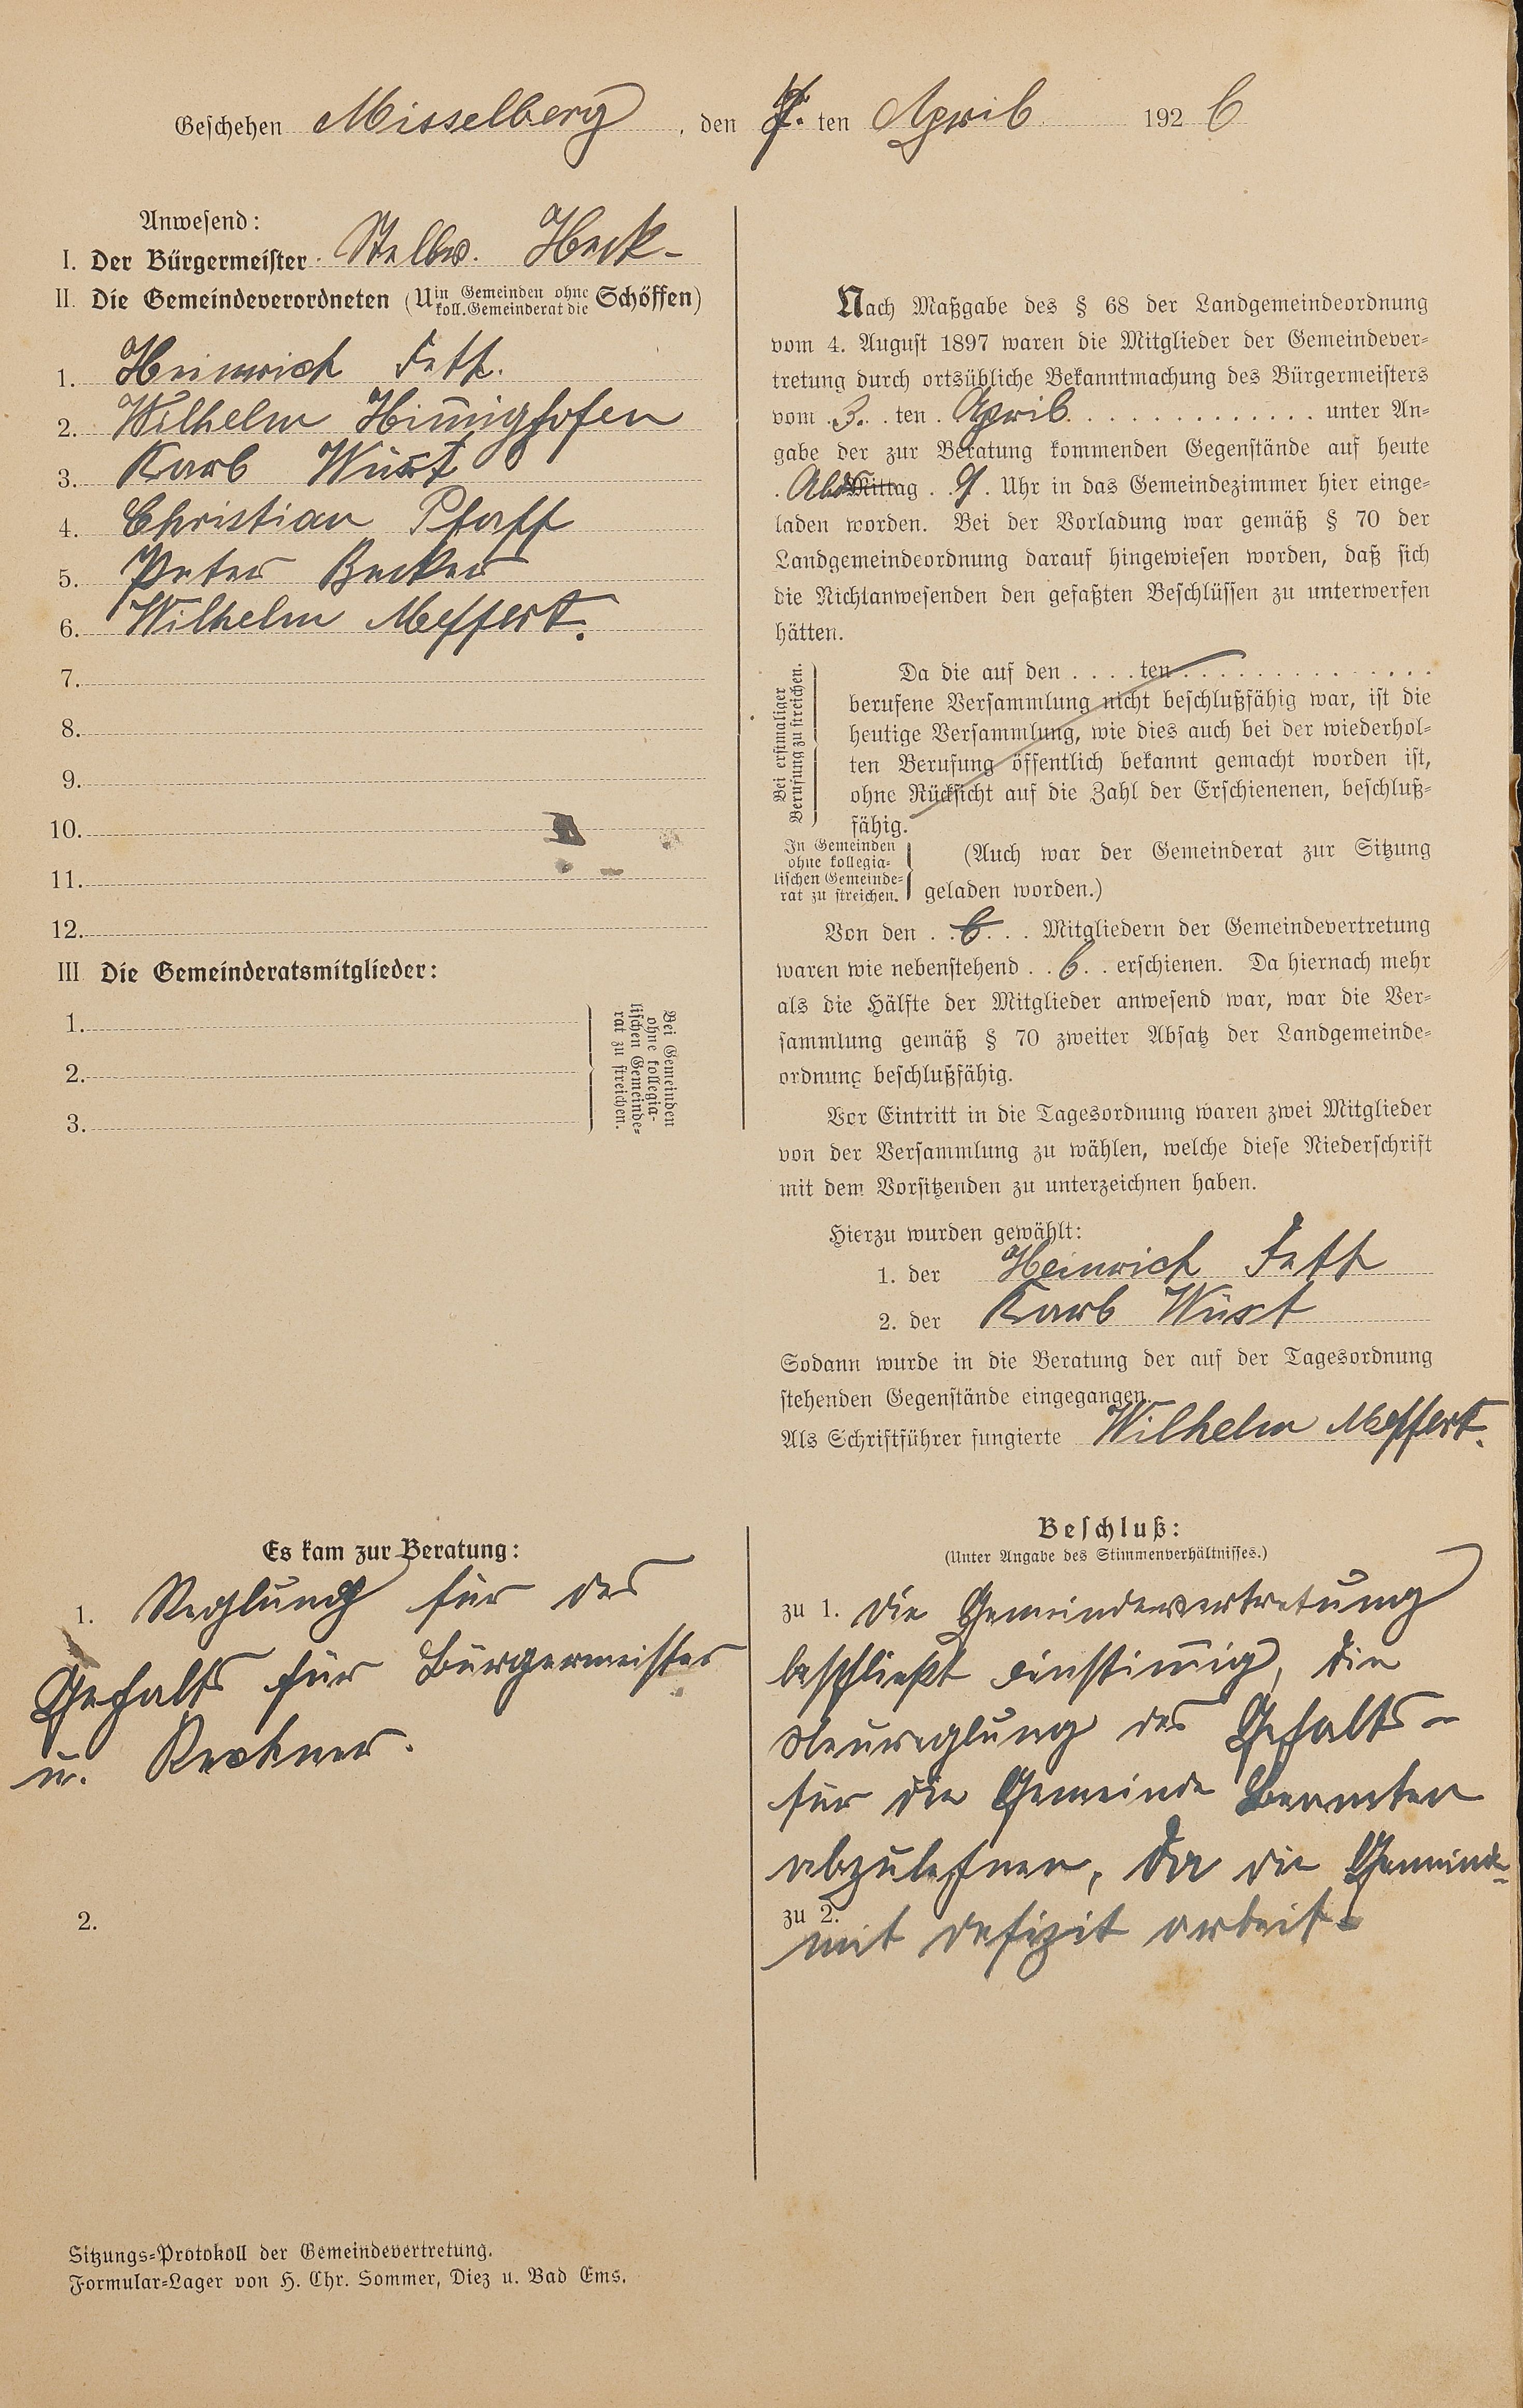 Geschehen Misselberg, den 7. ten April 1926
Anwesend:
I. Der Bürgermeister Stellv. Heck-
II. Die Gemeindeverordneten (U in Gemeinden ohne koll. Gemeinderat die Schöffen)
1. Heinrich Fett.
2. Wilhelm Himighofen
3. Karl Wüst
4. Christian Pfaff
5. Peter Becker
6. Wilhelm Meffert.
7.
8.
9.
10.
11.
12.
III Die Gemeinderatsmitglieder:
1.
2.
3.
Bei Gemeinden
ohne kollegia-
lischen Gemeinde-
rat zu streichen.
Nach Maßgabe des § 68 der Landgemeindeordnung
vom 4. August 1897 waren die Mitglieder der Gemeindever-
tretung durch ortsübliche Bekanntmachung des Bürgermeisters
vom 3. ten April unter An-
gabe der zur Beratung kommenden Gegenstände auf heute
Abd Mittag 9 Uhr in das Gemeindezimmer hier einge-
laden worden. Bei der Vorladung war gemäß § 70 der
Landgemeindeordnung darauf hingewiesen worden, daß sich
die Nichtanwesenden den gefaßten Beschlüssen zu unterwerfen
hätten.
Bei erstmaliger
Berufung zu streichen.
Da die auf den . . . . ten . . . .
berufene Versammlung nicht beschlußfähig war, ist die
heutige Versammlung, wie dies auch bei der wiederhol-
ten Berufung öffentlich bekannt gemacht worden ist,
ohne Rücksicht auf die Zahl der Erschienenen, beschluß-
fähig.
In Gemeinden
ohne kollegia-
lischen Gemeinde-
rat zu streichen.
(Auch war der Gemeinderat zur Sitzung
geladen worden.)
Von den 6 Mitgliedern der Gemeindevertretung
waren wie nebenstehend 6 erschienen. Da hiernach mehr
als die Hälfte der Mitglieder anwesend war, war die Ver-
sammlung gemäß § 70 zweiter Absatz der Landgemeinde-
ordnung beschlußfähig.
Vor Eintritt in die Tagesordnung waren zwei Mitglieder
von der Versammlung zu wählen, welche diese Niederschrift
mit dem Vorsitzenden zu unterzeichnen haben.
Hierzu wurden gewählt:
1. der Heinrich Fett
2. der Karl Wüst
Sodann wurde in die Beratung der auf der Tagesordnung
stehenden Gegenstände eingegangen.
Als Schriftführer fungierte Wilhelm Meffert.
Es kam zur Beratung:
1. Reglung für des
Gehalts für Bürgermeister
u. Rechner.
2.
Beschluß:
(Unter Angabe des Stimmenverhältnisses.)
zu 1. Die Gemeindevertretung
beschließt einstimig, die
Neureglung des Gehalts-
für die Gemeinde Beamten
abzulehnen, da die Gemeinde
zu 2.
mit defizit arbeit.
Sitzungs-Protokoll der Gemeindevertretung.
Formular-Lager von H. Chr. Sommer, Diez u. Bad Ems.